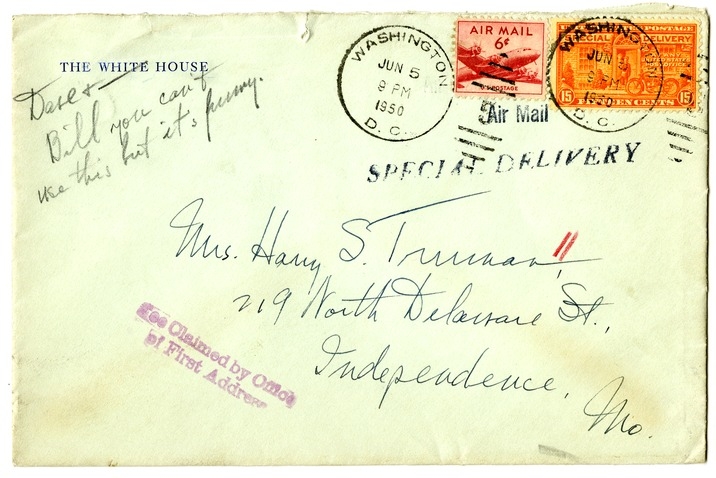 THE WHITE HOUSE
Dave +
Bill you can't
use this but it's funny.
WASHINGTON
JUN 5
9 PM
1950
D. C.
AIR MAIL
6¢
U.S. POSTAGE
Air Mail
POSTAGE
SPECIAL DELIVERY
15 FIFTEEN CENTS 15
WASHINGTON
JUN 5
9 PM
1950
D. C.
SPECIAL DELIVERY
Mrs. Harry S. Truman,
219 North Delaware St.,
Independence,
Mo.
Fee Claimed by Office
of First Address